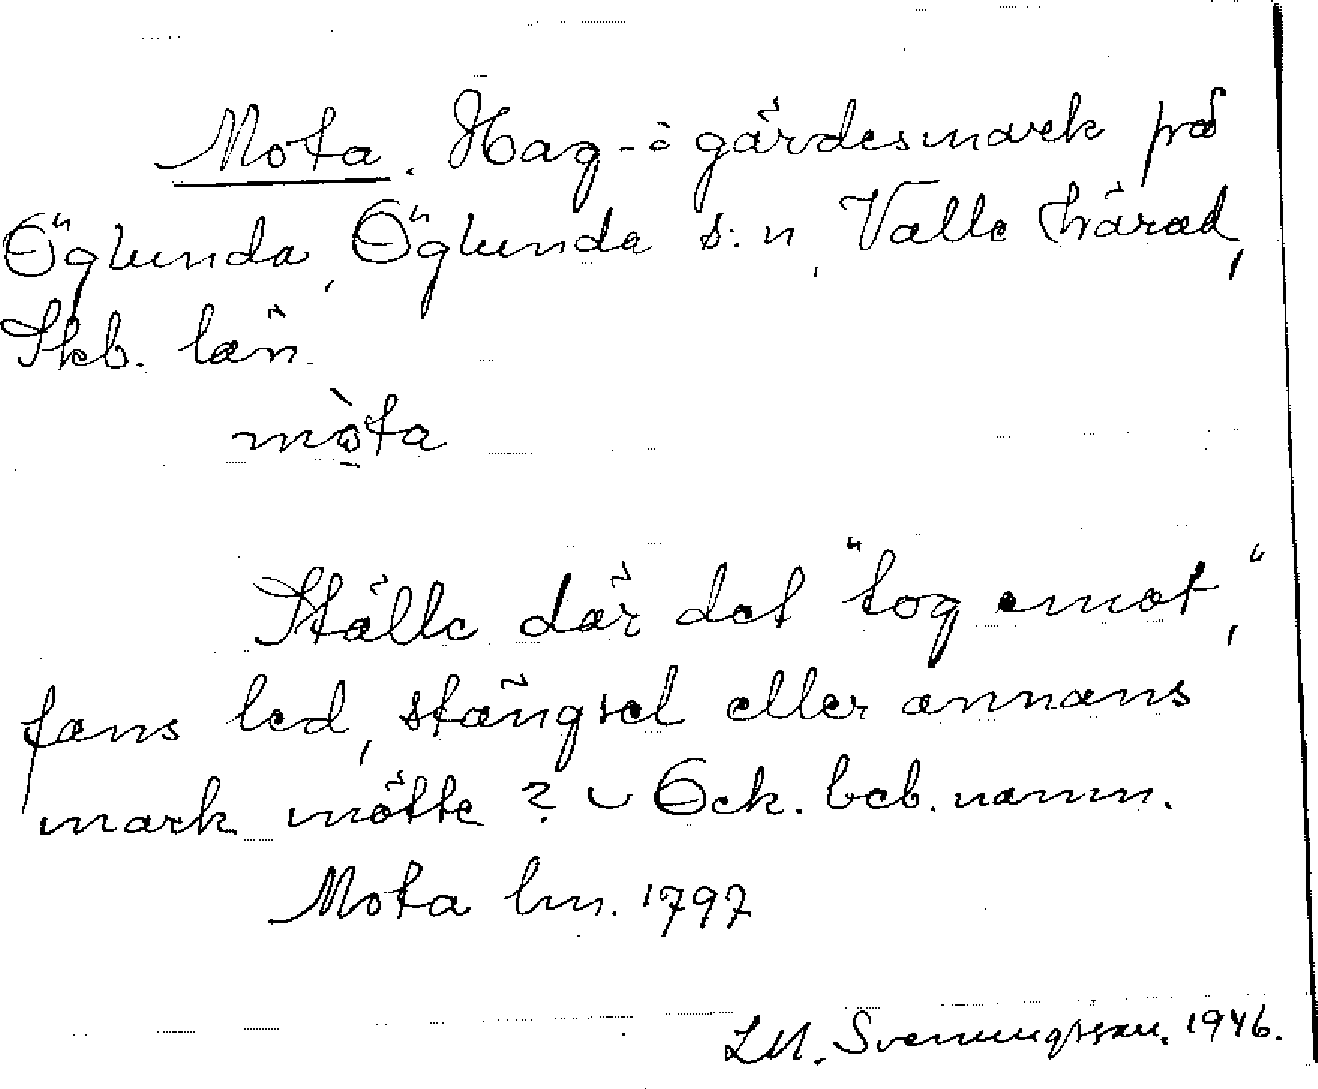 Mota. Hag- å gärdesmark på
Öglunda, Öglunda s:n, Valle härad,
Skb. län.
mò̩ta
Ställe där det "tog emot",
fans led, stängsel eller annans
mark mötte? Ock. beb. namn.
Mota lm. 1797
LM. Svenungsson. 1946.